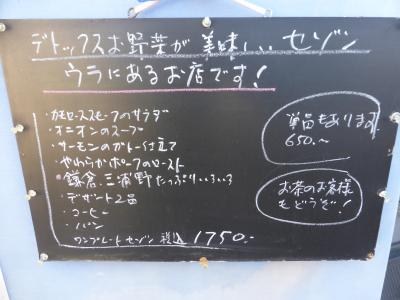 デトックスお野菜が美味しい セゾン
ウラにあるお店です!
・カモローススモークのサラダ
・オニオンのスープ
・サーモンのガトー仕立て
・やわらかポークのロースト
※鎌倉、三浦野たっぷりいろいろ
・デザート2皿
・コーヒー
・パン
ワンプレートセゾン 税込 1750.-
単品もあります。
650.~
お茶のお客様
もどうぞ!